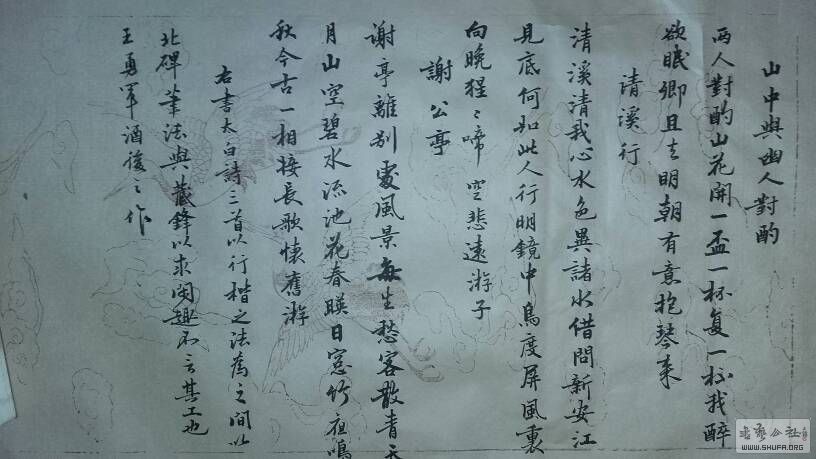 山中與幽人對酌
两人對酌山花開一盃一杯复一杯我醉
欲眠卿且去明朝有意抱琴来
清溪行
清溪清我心水色異諸水借問新安江
見底何如此人行明鏡中鳥度屏風裏
向晚猩〻啼空悲遠游子
謝公亭
謝亭離别處風景每生愁客散青天
月山空碧水流池花春暎日窓竹夜鳴
秋今古一相接長歌懷舊游
右書太白詩三首以行楷之法為之间以
北碑筆法與藏鋒以求闲趣不言其工也
王勇軍酒後之作
WWW.SHUFA.ORG